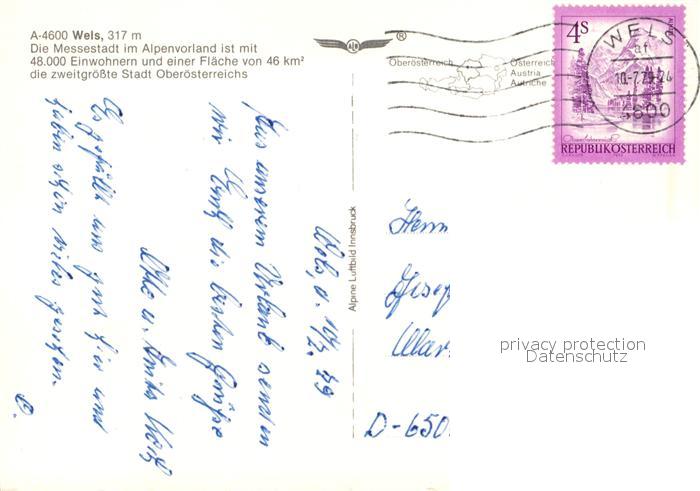 A-4600 Wels, 317 m
Die Messestadt im Alpenvorland ist mit
48.000 Einwohnern und einer Fläche von 46 km²
die zweitgrößte Stadt Oberösterreichs
®
Oberösterreich
Österreich
Austria
Autriche
WELS
4600
4S
REPUBLIK ÖSTERREICH
Alpine Luftbild Innsbruck
Wels, d. 10/7. 79
Aus unserem Urlaub senden
wir Euch die besten Grüße
Es gefällt uns gut hier und
haben schon vieles gesehen.
Herrn
Josep
Mar
D-650
privacy protection
Datenschutz